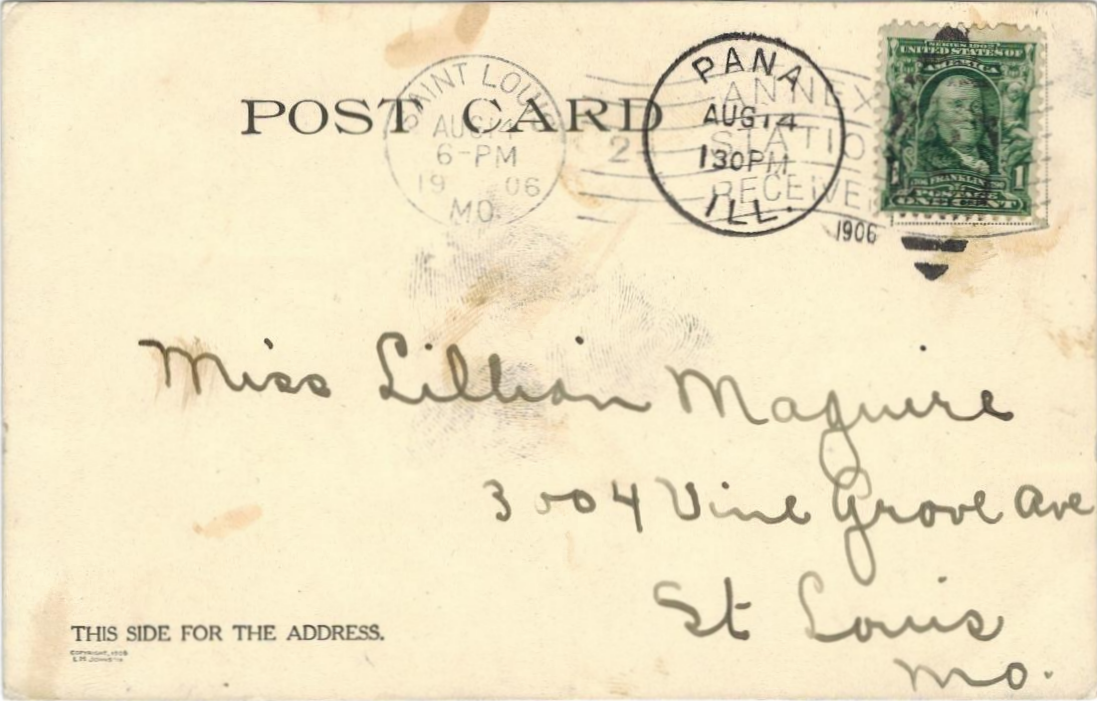 POST CARD
SAINT LOUIS
AUG 14
6-PM
19 06
MO.
2
ANNEX
STATION
RECEIVED
PANA
AUG 14
130PM
ILL.
1906
SERIES 1902
UNITED STATES OF
AMERICA
FRANKLIN
1 1
POSTAGE
ONE CENT
Miss Lillian Maguire
3004 Vine Grove Ave
St Louis
Mo.
THIS SIDE FOR THE ADDRESS.
COPYRIGHT, 1905